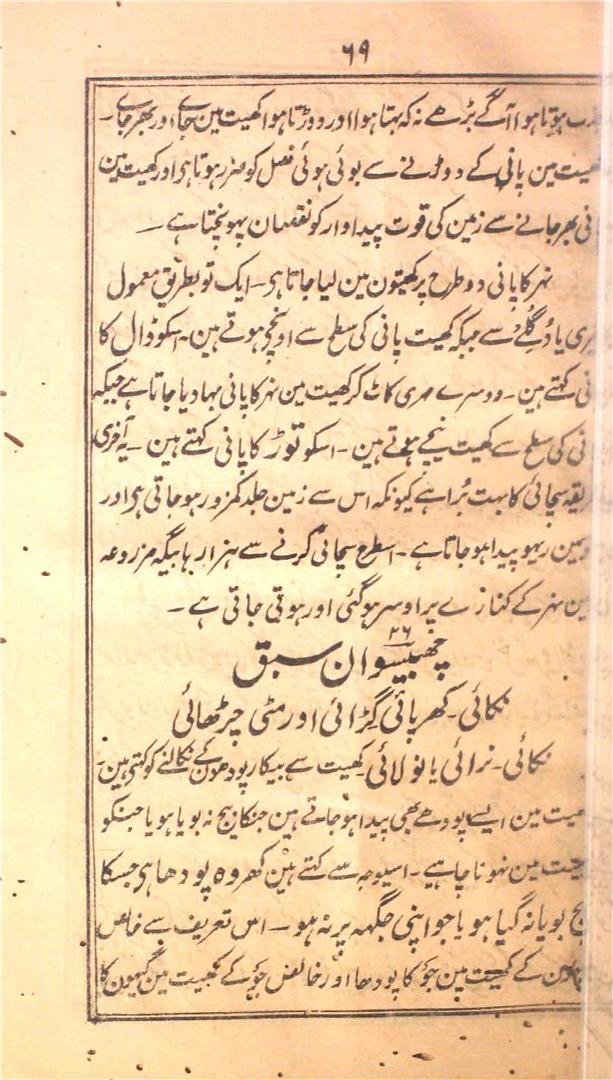 ۶۹
ہوتا ہوا آگے بڑھے نہ کہ بہتا ہوا اور دوڑتا ہوا کھیت مین جاے اور بھر جاے ۔
کھیت مین پانی کے دوڑنے سے بوئی ہوئی فصل کو ضرر ہوتا ہی اور کھیت مین
بھر جانے سے زمین کی قوت پیداوار کو نقصان پہونچتا ہے ۔
نہر کا پانی دو طرح پر کھیتون مین لیا جاتا ہی ۔ ایک تو بطریق معمول
یا دُگلے سے جبکہ کھیت پانی کی سطح سے اونچی ہوتے ہین ۔ اسکو ڈال کا
کہتے ہین ۔ دوسرے مہری کاٹ کر کھیت مین نہر کا پانی بہا دیا جاتا ہے جبکہ
کی سطح سے کھیت نیچے ہوتے ہین ۔ اسکو توڑ کا پانی کہتے ہین ۔ یہ آخری
سچائی کا بہت بُرا ہے کیونکہ اس سے زمین جلد کمزور ہو جاتی ہی اور
مین ریہو پیدا ہو جاتا ہے ۔ اسطرح سچائی کرنے سے ہزار ہا بیگہ مزروعہ
نہر کے کنارے پر اوسر ہو گئی اور ہوتی جاتی ہے ۔
۲۶
چھبیسوان سبق
نکائی ۔ کھرپائی گڑائی اور مٹی چڑھائی
نکائی ۔ نرائی یا نولائی کھیت سے بیکار پودھون کے نکالنے کو کہتی ہین ۔
مین ایسے پودھے بھی پیدا ہو جاتے ہین جنکا بیج نہ بویا ہو یا جنکو
مین نہونا چاہیے ۔ اسیوجہ سے کہتے ہین کھر وہ پودھا ہی جسکا
بیج بویا نہ گیا ہو یا جو اپنی جگہہ پر نہ ہو ۔ اس تعریف سے خالص
کے کھیت مین جَو کا پودھا اور خالص جَو کے کھیت مین گیہون کا